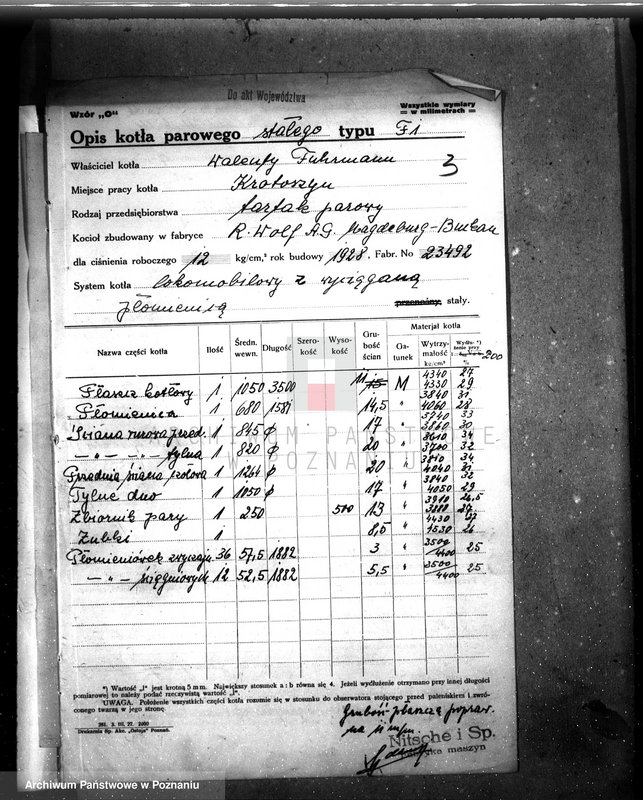 Do akt Województwa
Wzór „O"
Wszystkie wymiary
w milimetrach
Opis kotła parowego stałego typu F1
Właściciel kotła Walenty Fuhrmann
3
Miejsce pracy kotła Krotoszyn
Rodzaj przedsiębiorstwa tartak parowy
Kocioł zbudowany w fabryce R. Wolf A.G. Magdeburg-Buckau
dla ciśnienia roboczego 12 kg/cm,² rok budowy 1928. Fabr. No 23492
System kotła lokomobilowy z wyciąganą
płomienicą przenośny, stały.
Nazwa części kotła Ilość Średn. wewn. Długość Szerokość Wysokość Grubość ścian Materjał kotła
Gatunek Wytrzymałość kg/cm² Wydłuż. *) 200 %
Płaszcz kotłowy 1 1050 3500 15 M 4340 4330 27 29
Płomienica 1 680 1587 14,5 " 3840 4060 31 28
Ściana rurowa przed. 1 845 ø 17 " 3740 3860 33 30
— " — " — tylna 1 820 ø 20 " 3610 3700 34 32
Przednia ściana 1 1264 ø 20 " 3810 4040 34 31
Tylne dno 1 1050 ø 17 " 3840 4050 32 29
Zbiornik pary 1 250 500 13 " 3910 3880 26,5
1 8,5 " 4430 4530 26
Płomieniówek 36 57,5 1882 3 " 3500 4400 25
— " — ściągniowych 12 52,5 1882 5,5 " 3500 4400 25
*) Wartość „l" jest krotną 5 mm. Największy stosunek a : b równa się 4. Jeżeli wydłużenie otrzymano przy innej długości
pomiarowej to należy podać rzeczywistą wartość „l".
UWAGA. Położenie wszystkich części kotła rozumie się w stosunku do obserwatora stojącego przed paleniskiem i zwróconego
twarzą w jego stronę.
261. 3. III. 27. 2000
Drukarnia Sp. Akc. „Ostoja" Poznań.
Grubość płaszcza popraw.
na
Nitsche i Sp.
Fabryka maszyn
ARCHIWUM PAŃSTWOWE
W POZNANIU
Archiwum Państwowe w Poznaniu